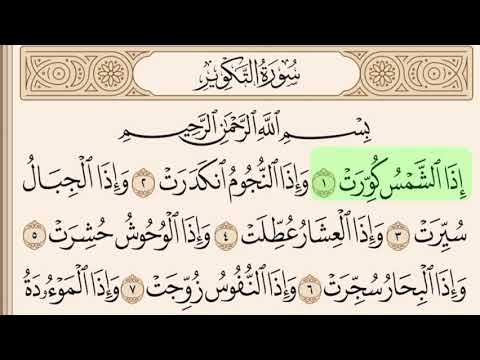 سُورَةُ التَّكْوِيرِ
بِسْمِ اللَّهِ الرَّحْمَٰنِ الرَّحِيمِ
إِذَا الشَّمْسُ كُوِّرَتْ ١ وَإِذَا النُّجُومُ انكَدَرَتْ ٢ وَإِذَا الْجِبَالُ
سُيِّرَتْ ٣ وَإِذَا الْعِشَارُ عُطِّلَتْ ٤ وَإِذَا الْوُحُوشُ حُشِرَتْ ٥
وَإِذَا الْبِحَارُ سُجِّرَتْ ٦ وَإِذَا النُّفُوسُ زُوِّجَتْ ٧ وَإِذَا الْمَوْءُودَةُ